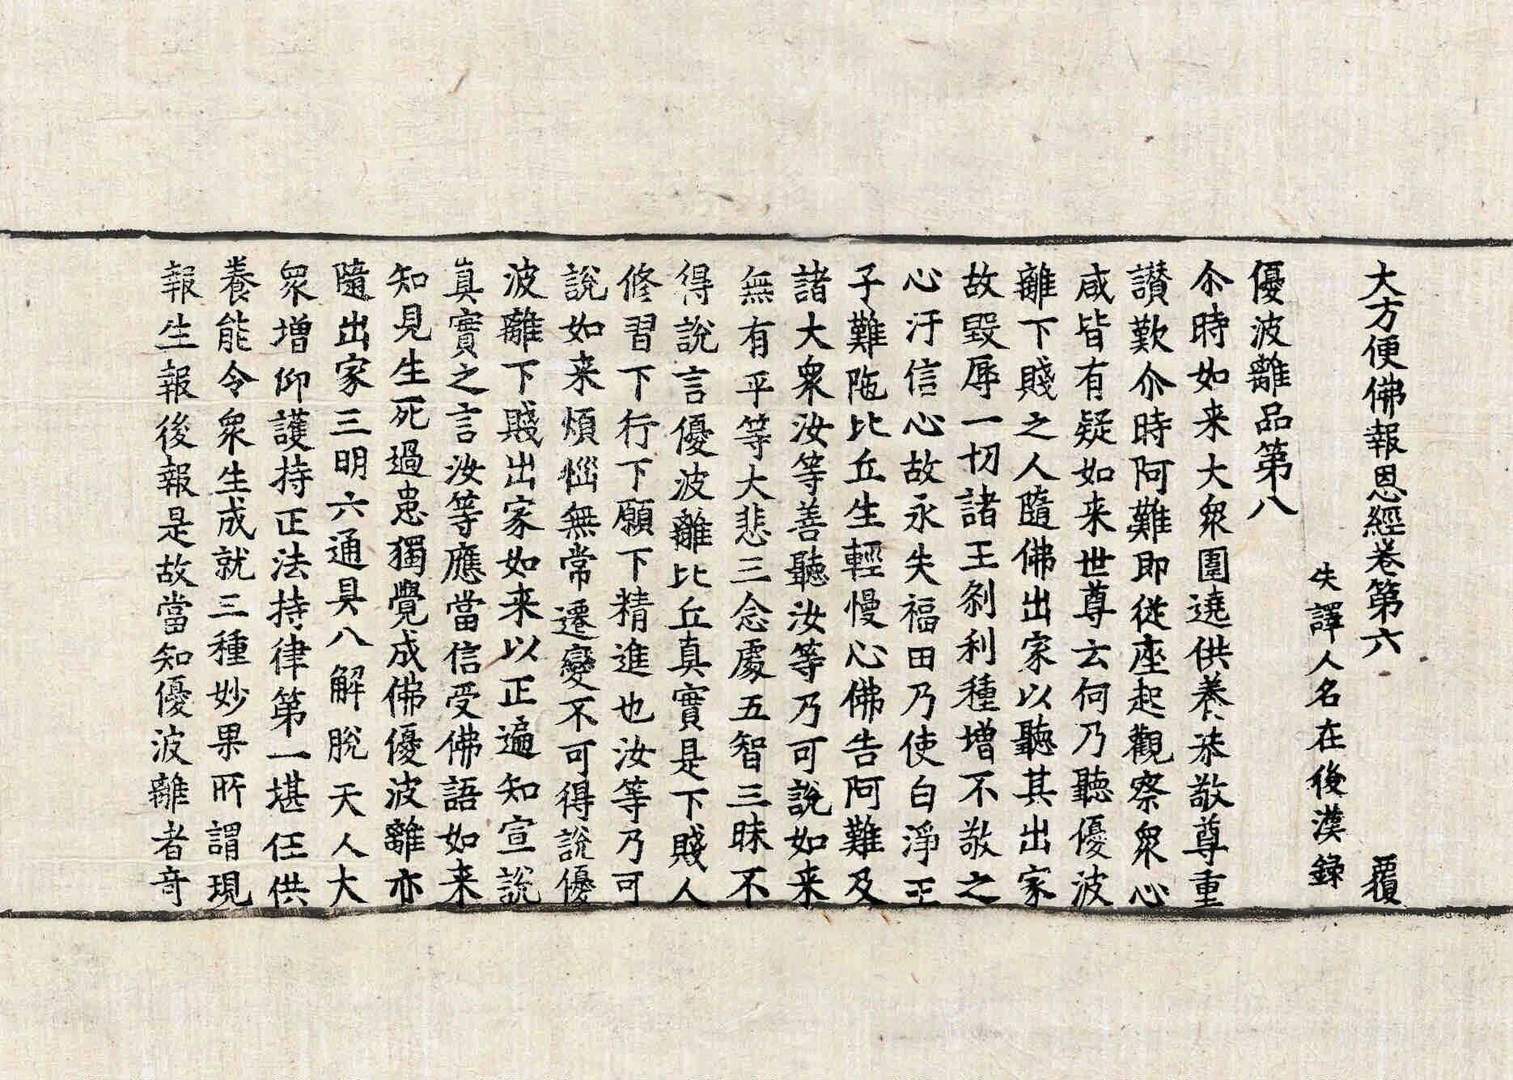 大方便佛報恩經卷第六 覆
失譯人名在後漢錄
優波離品第八
尒時如来大衆圍遶供養恭敬尊重
讃歎尒時阿難即從座起觀察衆心
咸皆有疑如来世尊云何乃聽優波
離下賤之人隨佛出家以聽其出家
故毀辱一切諸王刹利種增不敬之
心汙信心故永失福田乃使白淨王
子難陁比丘生輕慢心佛告阿難及
諸大衆汝等善聽汝等乃可說如来
無有平等大悲三念處五智三昧不
得說言優波離比丘真實是下賤人
修習下行下願下精進也汝等乃可
說如来煩惱無常遷變不可得說優
波離下賤出家如来以正遍知宣說
真實之言汝等應當信受佛語如来
知見生死過患獨覺成佛優波離亦
隨出家三明六通具八解脫天人大
衆增仰護持正法持律第一堪任供
養能令衆生成就三種妙果所謂現
報生報後報是故當知優波離者竒